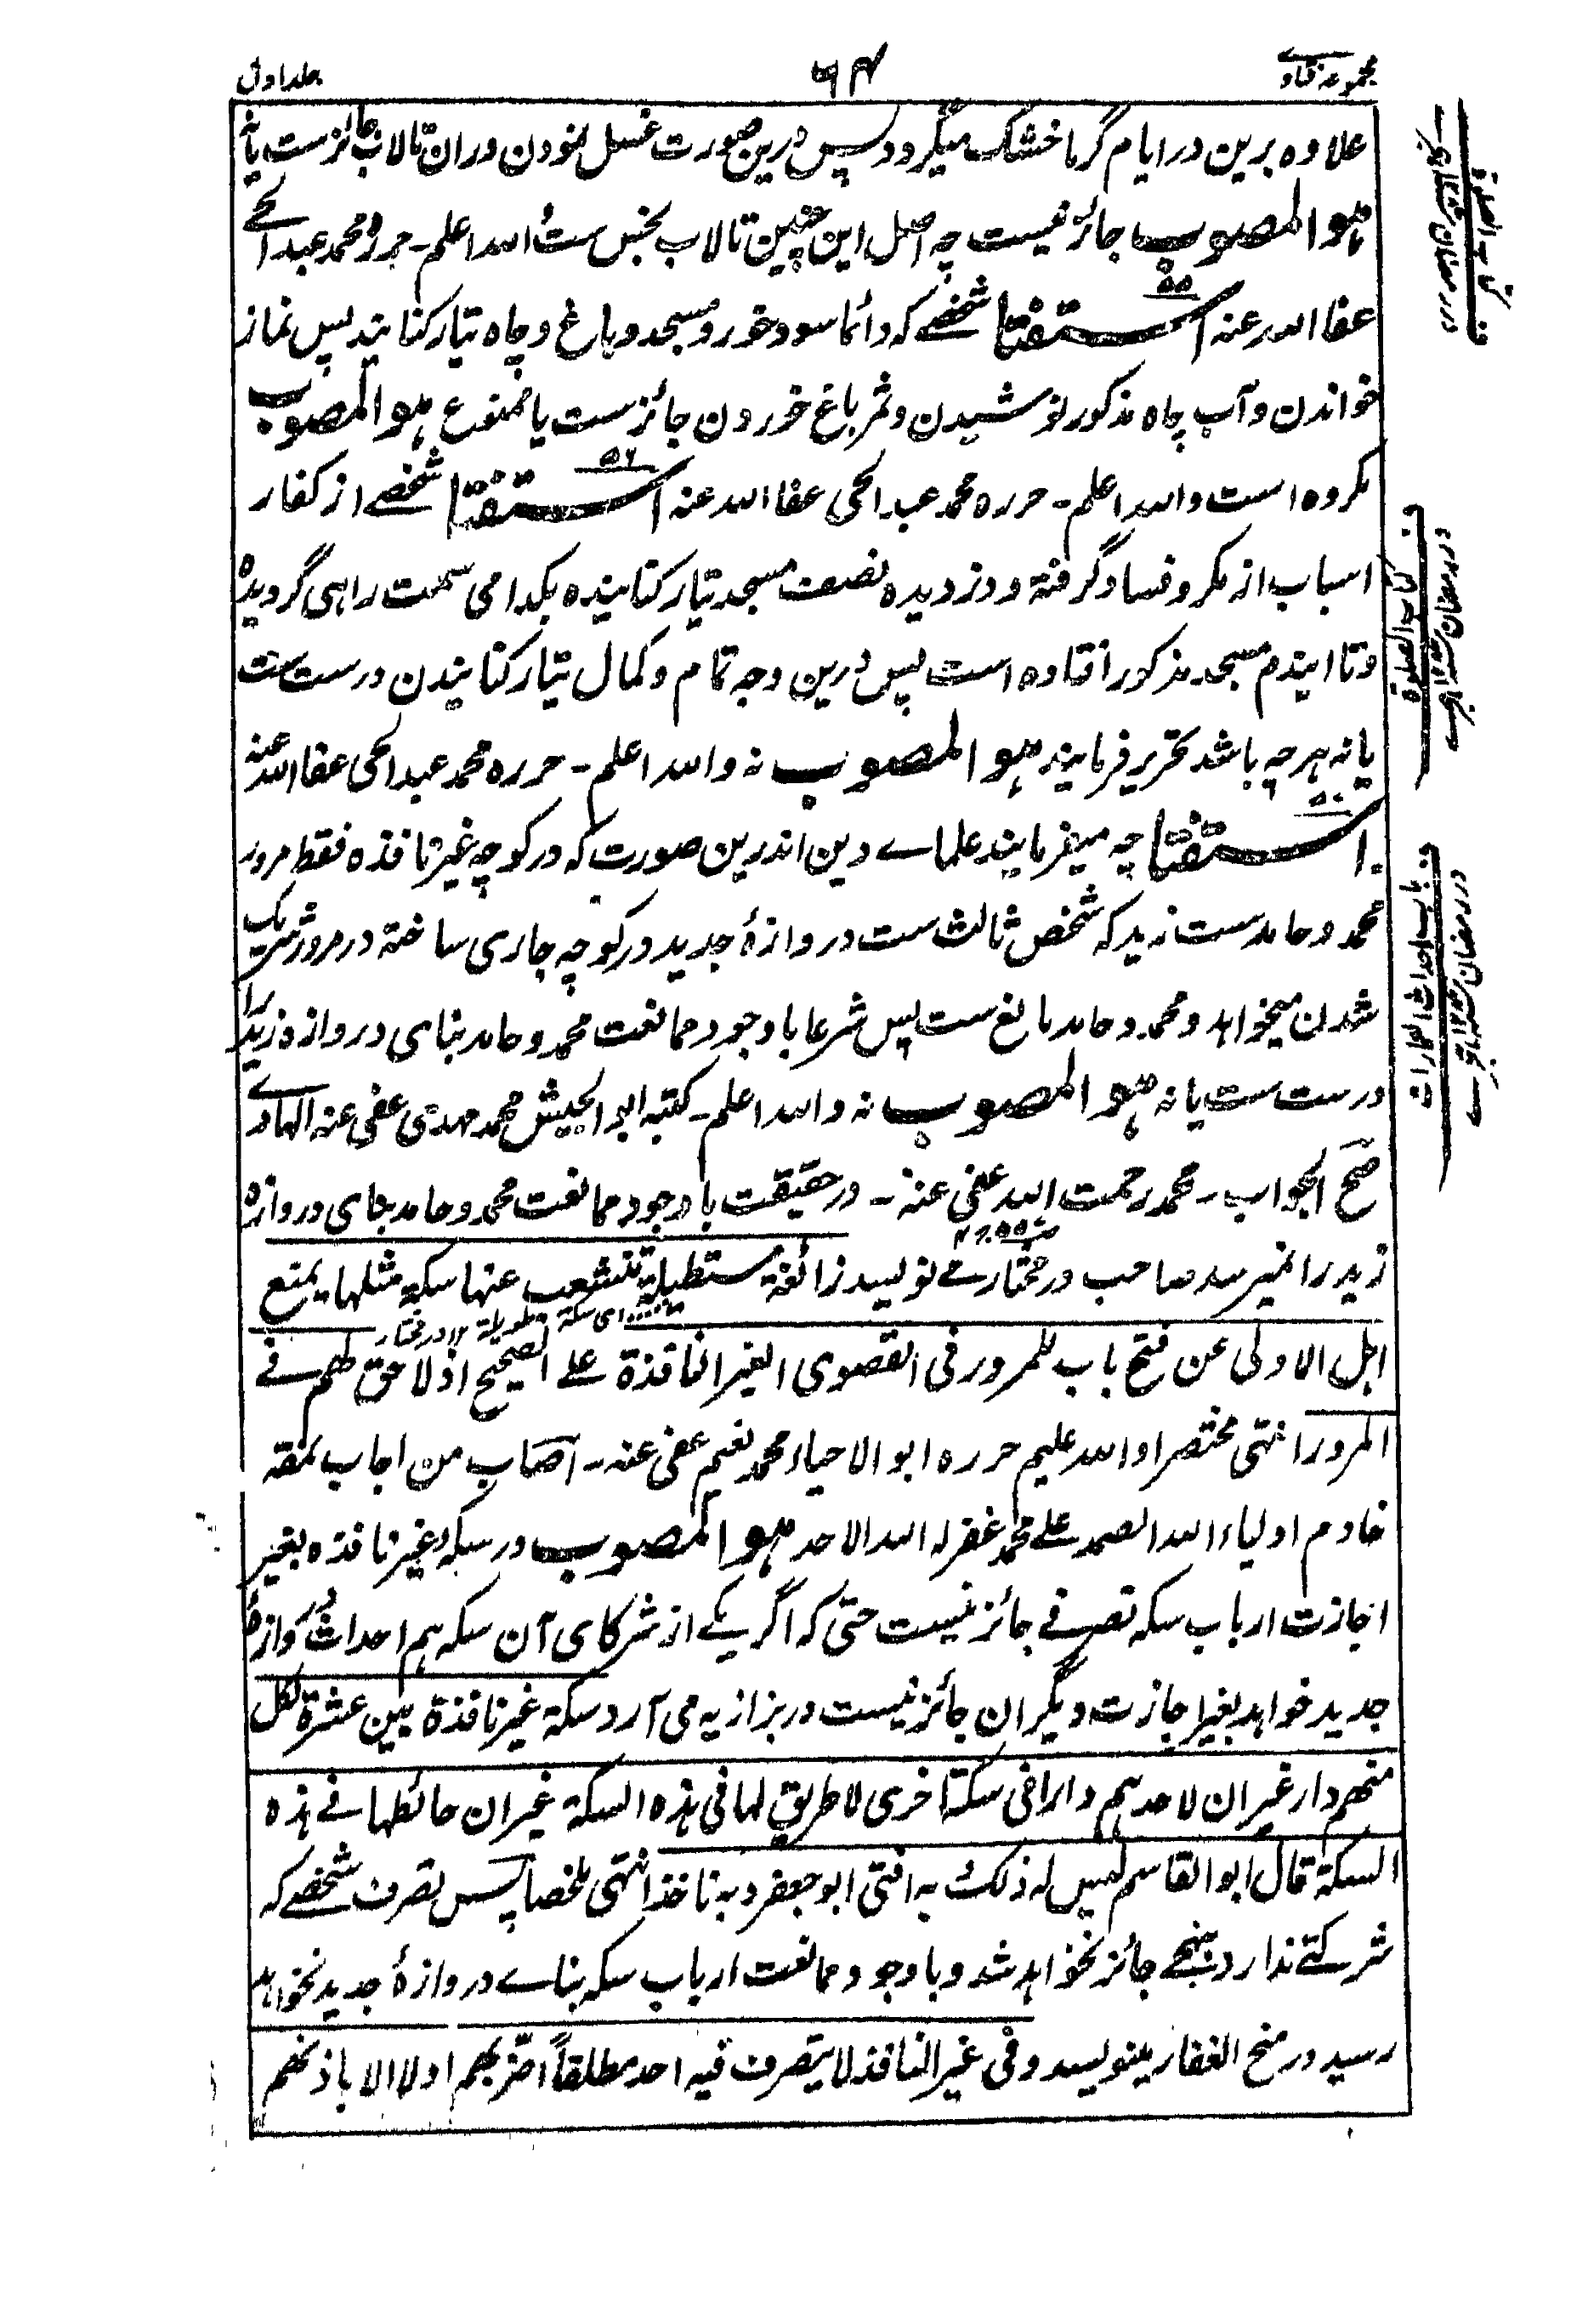 مجموعه فتاوے
۶۴
جلد اول
علاوه برین در ایام گرما خشک میگردد پس درین صورت غسل نمودن دران تالاب جائزست یا نه
هو المصوب جائز نیست چه اصل این چنین تالاب نجس ست والله اعلم۔ حرره محمد عبد الحے
عفا الله عنه استفتا شخصے که دائما سود خورد و مسجد و باغ و چاه تیار کنایند پس نماز
۵۵
خواندن و آب چاه مذکور نوشیدن و ثمر باغ خوردن جائز ست یا ممنوع هو المصوب
مکروه است والله اعلم۔ حرره محمد عبد الحی عفا الله عنه استفتا شخصے از کفار
۵۶
اسباب از مکر و فساد گرفته و دزدیده نصف مسجد تیار کنانیده بکدامی سمت راهی گردیده
و تا ایندم مسجد مذکور افتاده است پس درین وجه تمام و کمال تیار کنایندن درست ست
یا نه هر چه باشد تحریر فرمایند هو المصوب نه والله اعلم۔ حرره محمد عبد الحی عفا الله عنه
استفتا چه میفرمایند علماے دین اندرین صورت که در کوچه غیر نافذه فقط مرور
محمد و حامد ست زید که شخص ثالث ست دروازۂ جدید در کوچه جاری ساخته در مرور شریک
شدن میخواهد و محمد و حامد مانع ست پس شرعا با وجود ممانعت محمد و حامد بنای دروازه زید را
درست ست یا نه هو المصوب نه والله اعلم۔ کتبه ابو الجیش محمد مهدی عفی عنه الهادے
صح الجواب۔ محمد رحمت الله عفی عنه۔ در حقیقت با وجود ممانعت محمد و حامد بنای دروازه
زید را نمیرسد صاحب در مختار مے نویسد زائغة مستطیلة تتشعب عنها سکة مثلها یمنع
ای سکة طویلة ۱۲ در مختار
اهل الاولی عن فتح باب للمرور فی القصوی الغیر النافذة علے الصحیح اذ لا حق لهم فے
المرور انتهی مختصرا والله علیم حرره ابو الاحیاء محمد نعیم عفی عنه۔ اصاب من اجاب نمقه
خادم اولیاء الله الصمد علے محمد غفر له الله الاحد هو المصوب در سکۂ غیر نافذه بغیر
اجازت ارباب سکه تصرفے جائز نیست حتی که اگر یکے از شرکای آن سکه هم احداث دروازۂ
جدید خواهد بغیر اجازت دیگران جائز نیست در بزازیه می آرد سکة غیر نافذة بین عشرة لکل
منهم دار غیر ان لاحدهم دارا فی سکة اخری لا طریق لها فی هذه السکة غیر ان حائطها فے هذه
السکة قال ابو القاسم لیس له ذلک و به افتی ابو جعفر و به ناخذ انتهی ملخصا پس تصرف شخصے که
شرکتے ندارد بنهجے جائز نخواهد شد و با وجود ممانعت ارباب سکه بناے دروازۂ جدید نخواهد
رسید در منح الغفار مینویسد و فی غیر النافذ لا یتصرف فیه احد مطلقاً اضر بهم اولا الا باذنهم
کتاب الصلوة
باب احداث العمارات